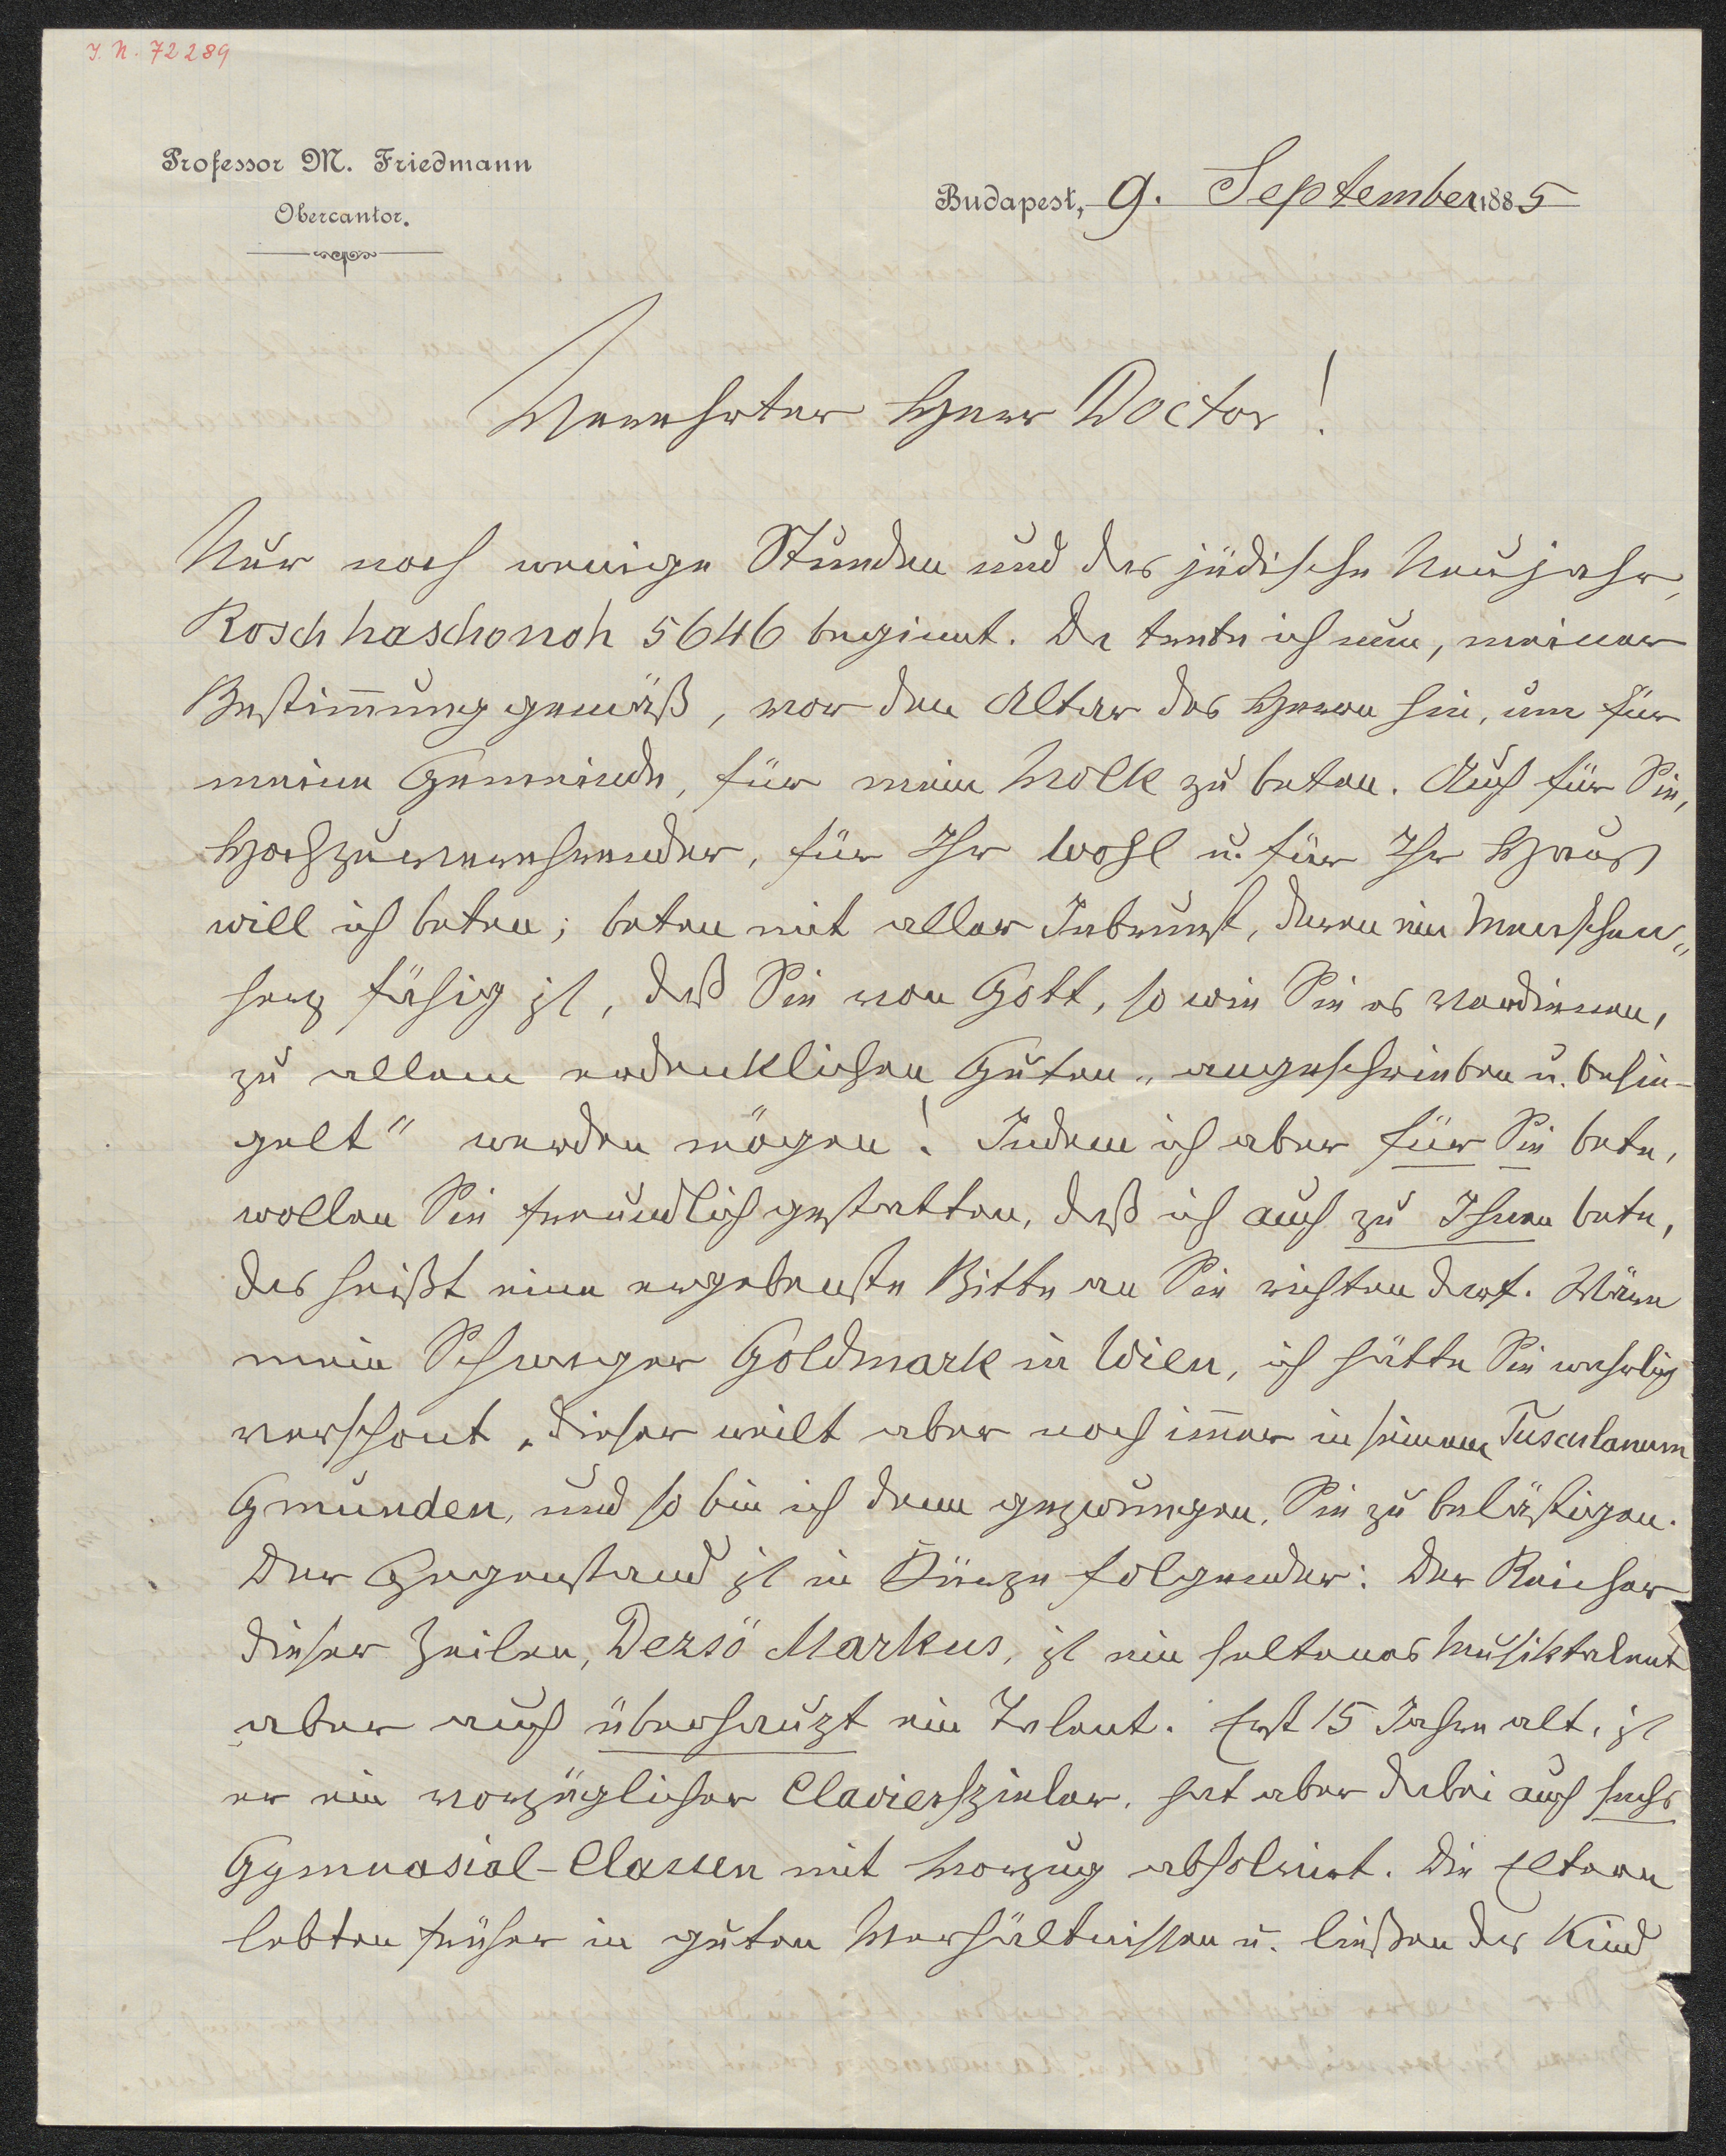 I. N. 72289
Professor M. Friedmann
Obercantor.
Budapest, 9. September 1885
Verehrter Herr Doctor!
Nur noch wenige Stunden und das jüdische Neujahr,
Rosch haschonoh 5646 beginnt. Da trete ich nun, meiner
Bestim̄ung gemäß, vor den Altar des Herrn hin, um für
meine Gemeinde, für mein Volk zu beten. Auch für Sie,
Hochzuverehrender, für Ihr Wohl u. für Ihr Haus
will ich beten; beten mit aller Inbrunst, deren ein Menschen„
herz fähig ist, daß Sie von Gott, so wie Sie es verdienen,
zu allem erdenklichen Guten „angeschrieben u. besie-
gelt“ werden mögen! Indem ich aber für Sie bete,
wollen Sie freundlich gestatten, daß ich auch zu Ihnen bete,
das heißt eine ergebenste Bitte an Sie richten darf. Wäre
mein Schwager Goldmark in Wien, ich hätte Sie wahrlich
verschont, dieser weilt aber noch im̄er in seinem Tusculanum
Gmunden, und so bin ich denn gezwungen, Sie zu belästigen.
Der Gegenstand ist in Kürze folgender: Der Reicher
dieser Zeilen, Dezsö Markus, ist ein seltenes Musiktalent
aber auch überhaupt ein Talent. Erst 15 Jahre alt, ist
er ein vorzüglicher Clavierspieler, hat aber dabei auch sechs
Gymnasial-Classen mit Vorzug absolvirt. Die Eltern
lebten früher in guten Verhältnissen u. ließen das Kind